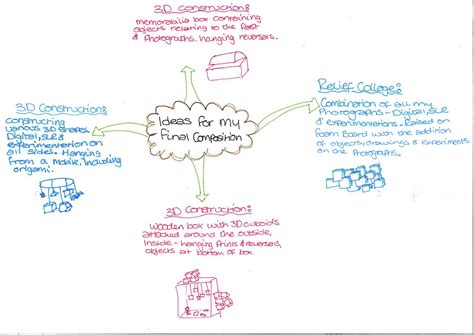 3D Construction:
Memorabilia box containing
objects relating to the Past
& Photographs. Hanging reversels.
Relief College:
Combination of all my
Photographs - Digital, SLR
& experimentations - Raised on
Foam Board with the addition
of objects, drawings & experiments
on the Photographs.
3D Construction:
constructing
various 3D shapes
Digital, SLR &
experimentation on
all sides. Hanging
from a Mobile, including
origami.
Ideas for my
Final Composition
3D Construction:
Wooden box with 3D cuboids
attached around the outside,
Inside - hanging Prints & reversels,
objects at bottom of box